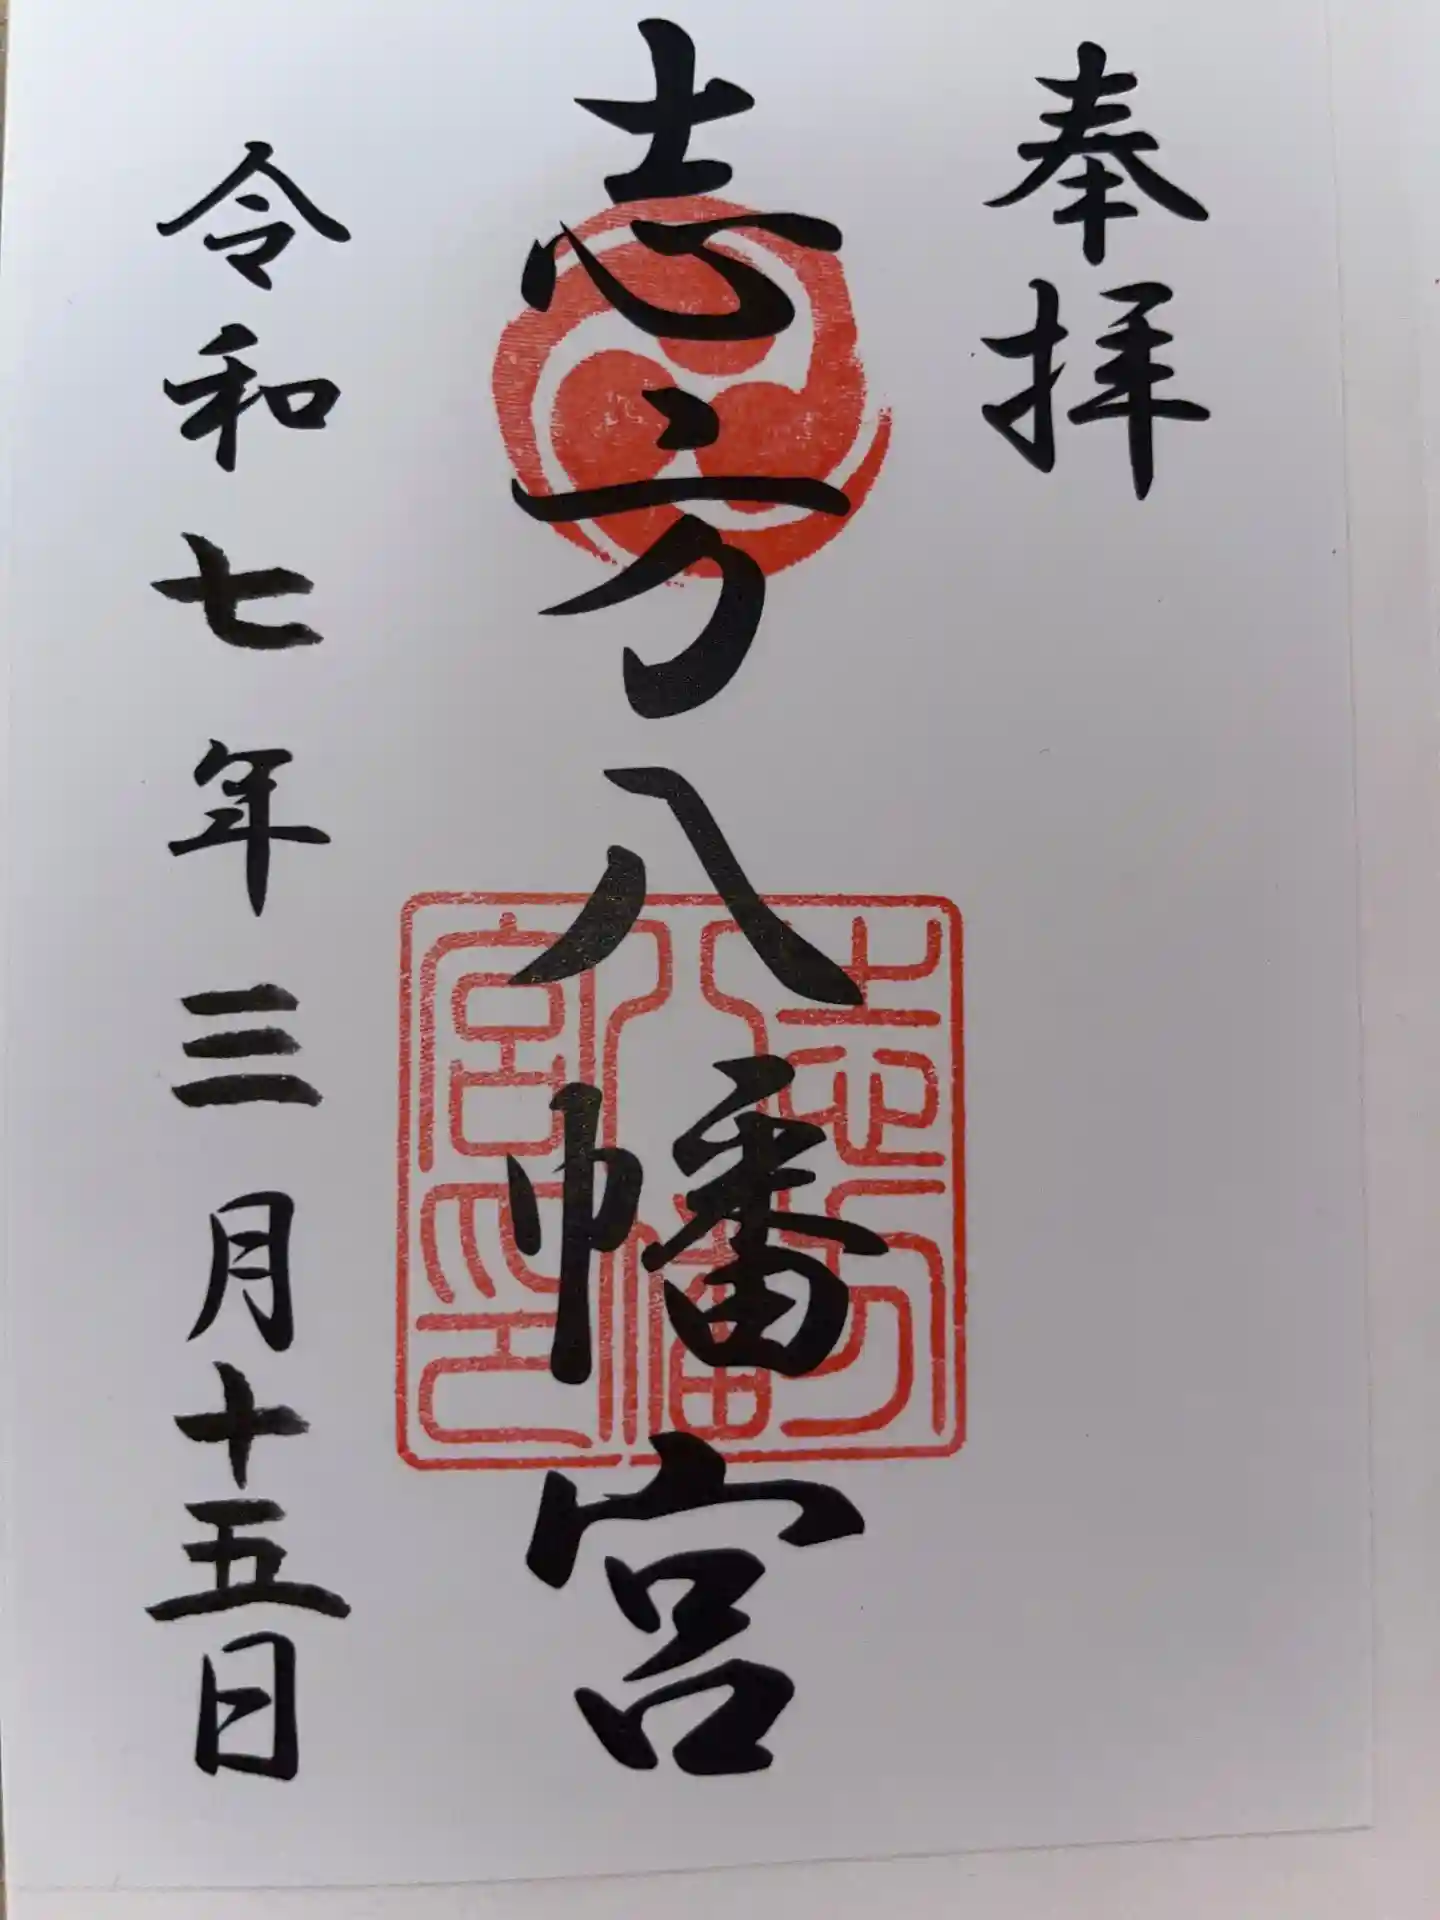 奉拝
志方八幡宮
志方八幡宮印
令和七年三月十五日